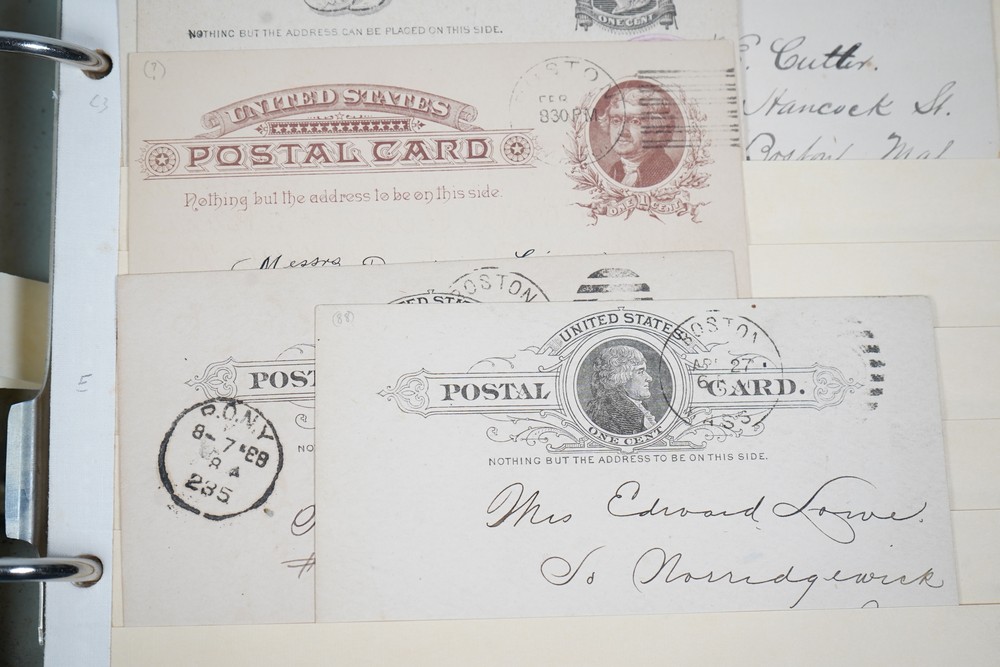 NOTHING BUT THE ADDRESS CAN BE PLACED ON THIS SIDE.
ONE CENT
E. Cutter.
Hancock St.
Boston
(?)
UNITED STATES
POSTAL CARD
Nothing but the address to be on this side.
FEB
830PM
ONE 1 CENT
Messrs
C3
E
BOSTON
POST
NO
P.O.N.Y.
8-7 '88
8 A
235
#
(88)
UNITED STATES
POSTAL CARD.
ONE CENT
NOTHING BUT THE ADDRESS TO BE ON THIS SIDE.
BOSTON
27
MASS
Mrs Edward Lowe.
So Norridgewick